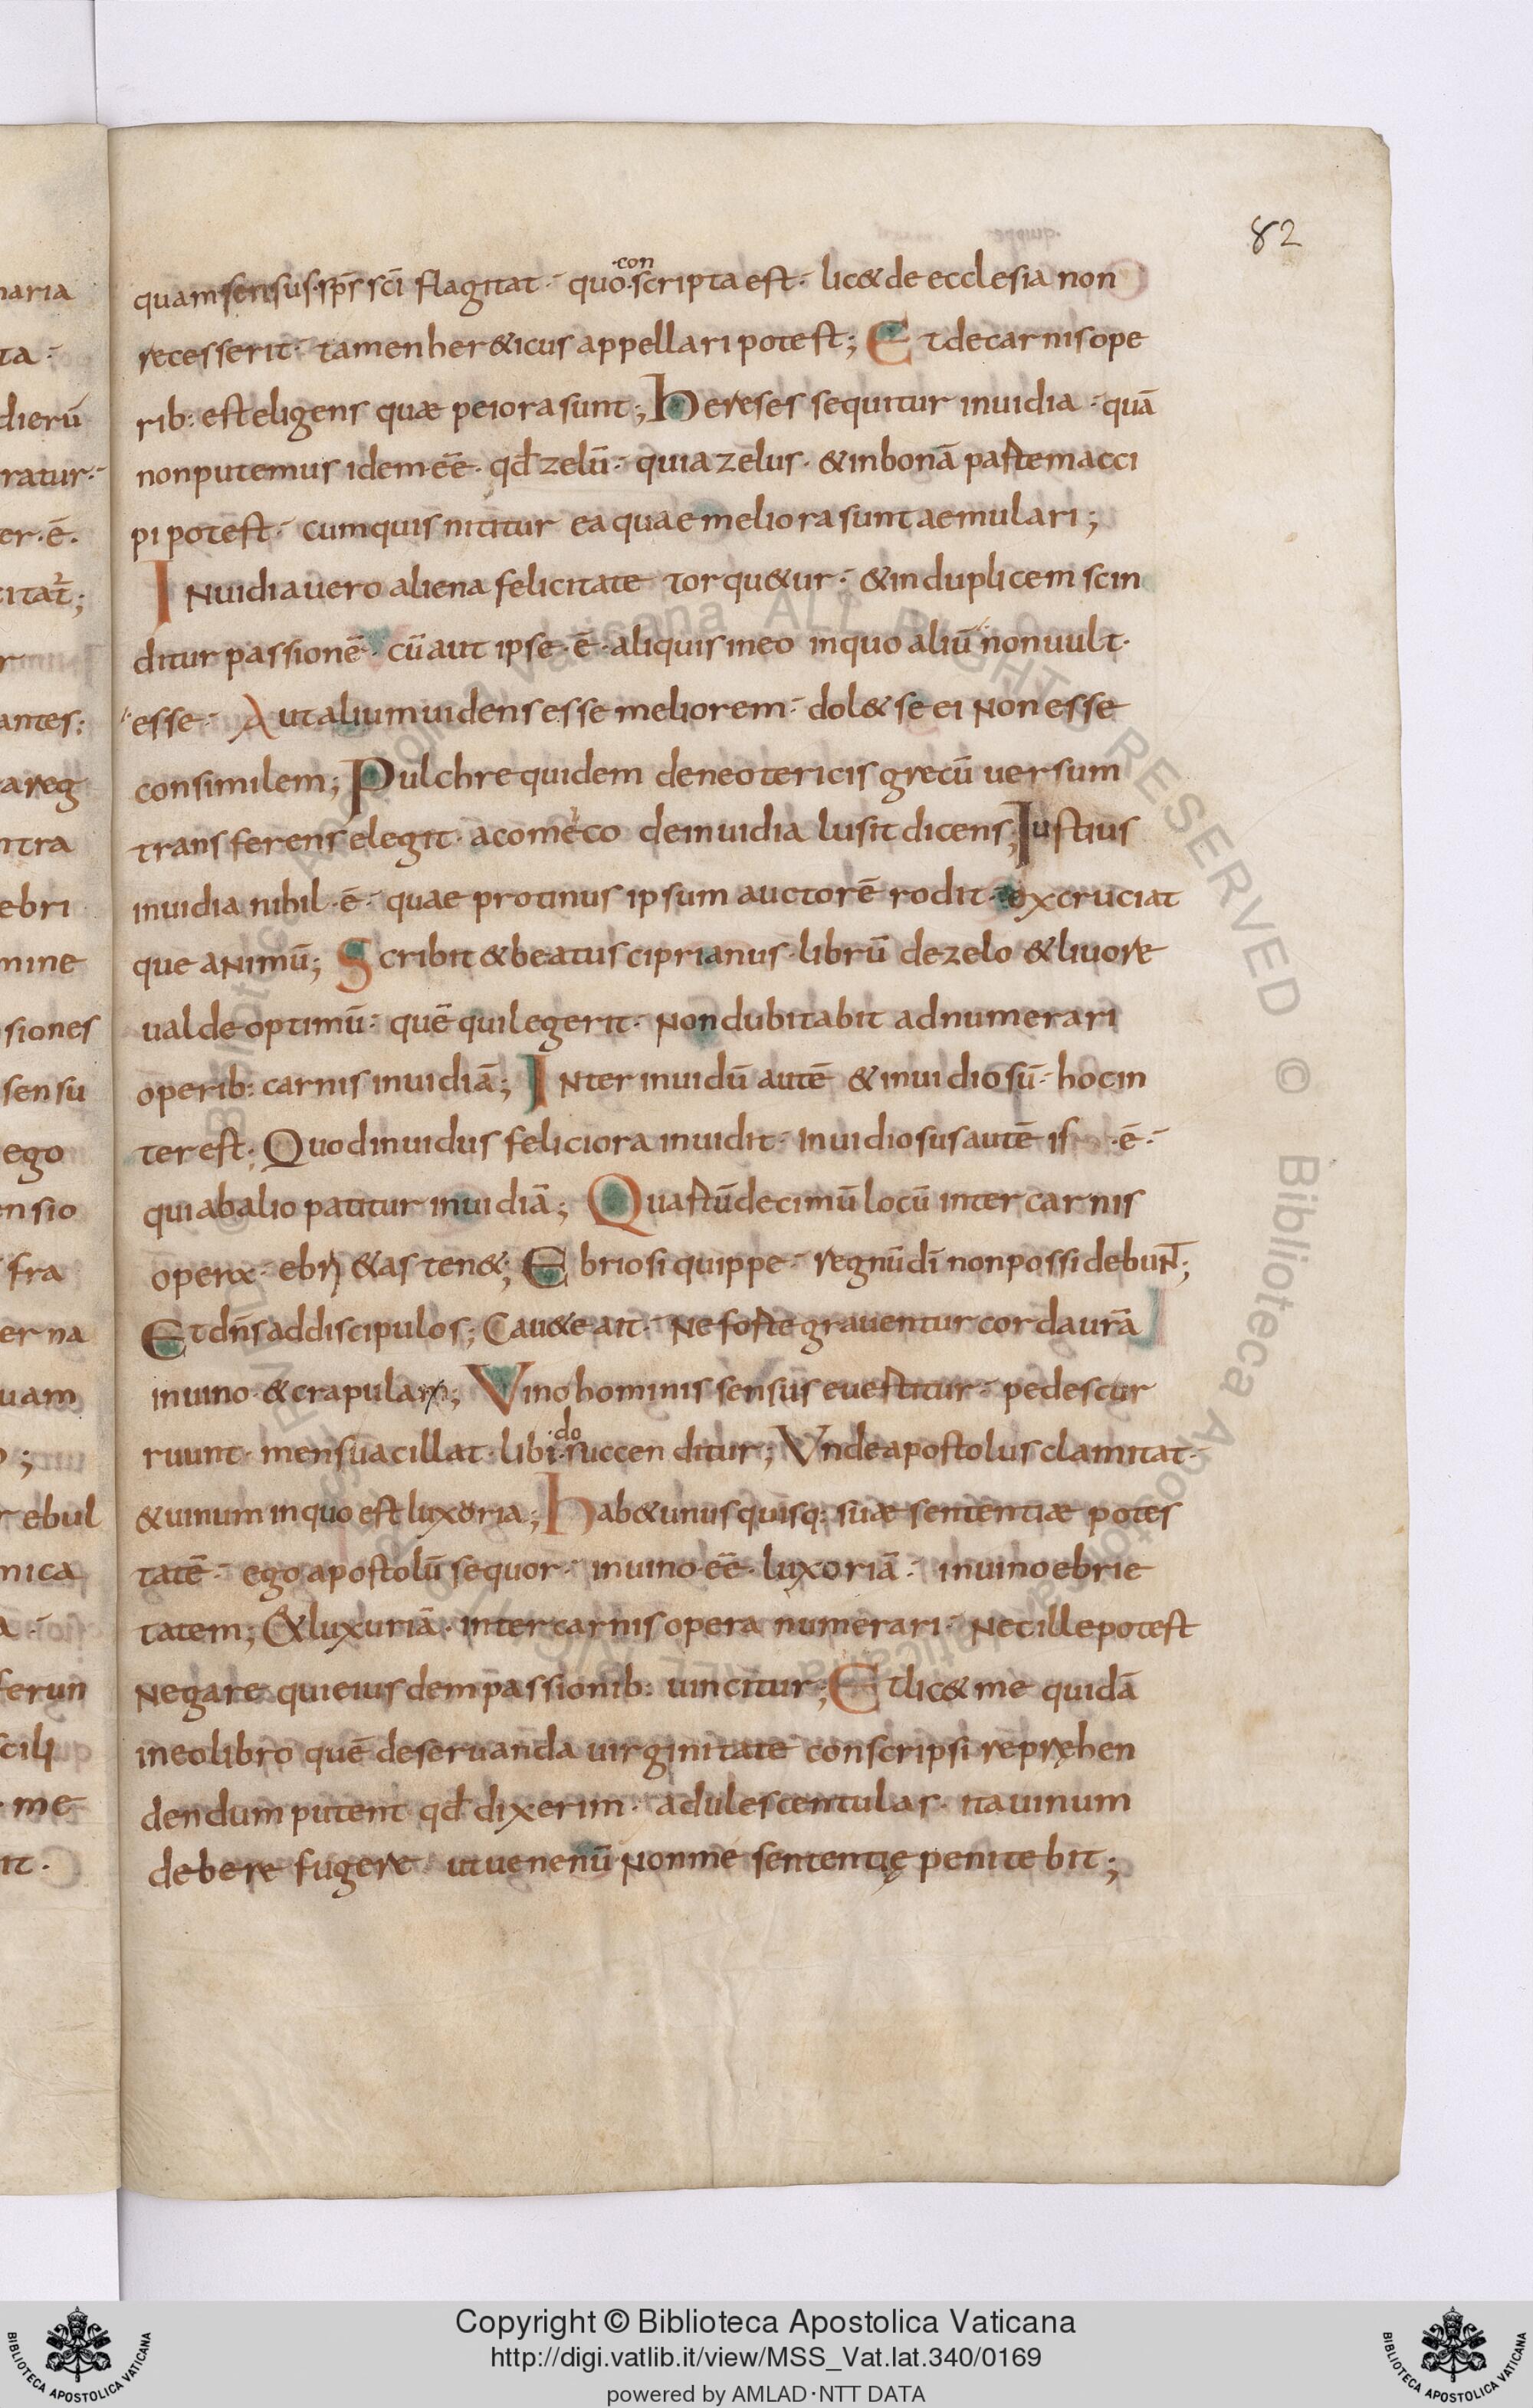 82
quam sensus sp̄s sc̄i flagitat· quo ·con· scripta est· lic& de ecclesia non
recesserit· tamen her&icus appellari potest; Et de carnis ope
rib: est eligens quæ peiora sunt; Hereses sequitur inuidia· quā
non putemus idem·eē· qd̄ zelū· quia zelus· & in bonā partem acci
pi potest· cum quis nititur ea quae meliora sunt aemulari;
Inuidia uero aliena felicitate torqu&ur· & in duplicem scin
ditur passionē· cū aut ipse·ē· aliquis in eo in quo aliū non uult·
esse· Aut alium uidens esse meliorem· dol& se ei non esse
consimilem; Pulchre quidem de neotericis grecū uersum
transferens elegit· acometco de inuidia lusit dicens; Iustius
inuidia nihil·ē· quae protinus ipsum auctorē rodit· excruciat
que animū; Scribit & beatus ciprianus· librū de zelo & liuore
ualde optimū· quē qui legerit· non dubitabit adnumerari
operib: carnis inuidiā; Inter inuidū autē & inuidiosū· hoc in
terest; Quod inuidus feliciora inuidit· inuidiosus autē is ·ē·
qui ab alio patitur inuidiā; Quartūdecimū locū inter carnis
opera· ebrı &as ten&; Ebriosi quippe· regnū dī non possidebunt;
Et dn̄s ad discipulos; Cau&e ait· Ne forte grauentur corda ur̄a
in uino· & crapula; Vino hominis sensus euertitur· pedes cor
ruunt· mens uacillat· libi·do· succenditur; Vnde apostolus clamitat·
& uinum in quo est luxoria; Hab& unusquisq: suæ sententiæ potes
tatē· ego apostolū sequor· in uino·eē· luxoriā· in uino ebrie
tatem; & luxuriā· inter carnis opera numerari· Nec ille potest
negare qui eiusdem passionib: uincitur; Et lic& me quidā
in eo libro quē de seruanda uirginitate conscripsi reprȩhen
dendum putent qd̄ dixerim· adulescentulas· ita uinum
debere fugere· ut uenenū non me sententiȩ penitebit;
Copyright © Biblioteca Apostolica Vaticana
http://digi.vatlib.it/view/MSS_Vat.lat.340/0169
powered by AMLAD·NTT DATA